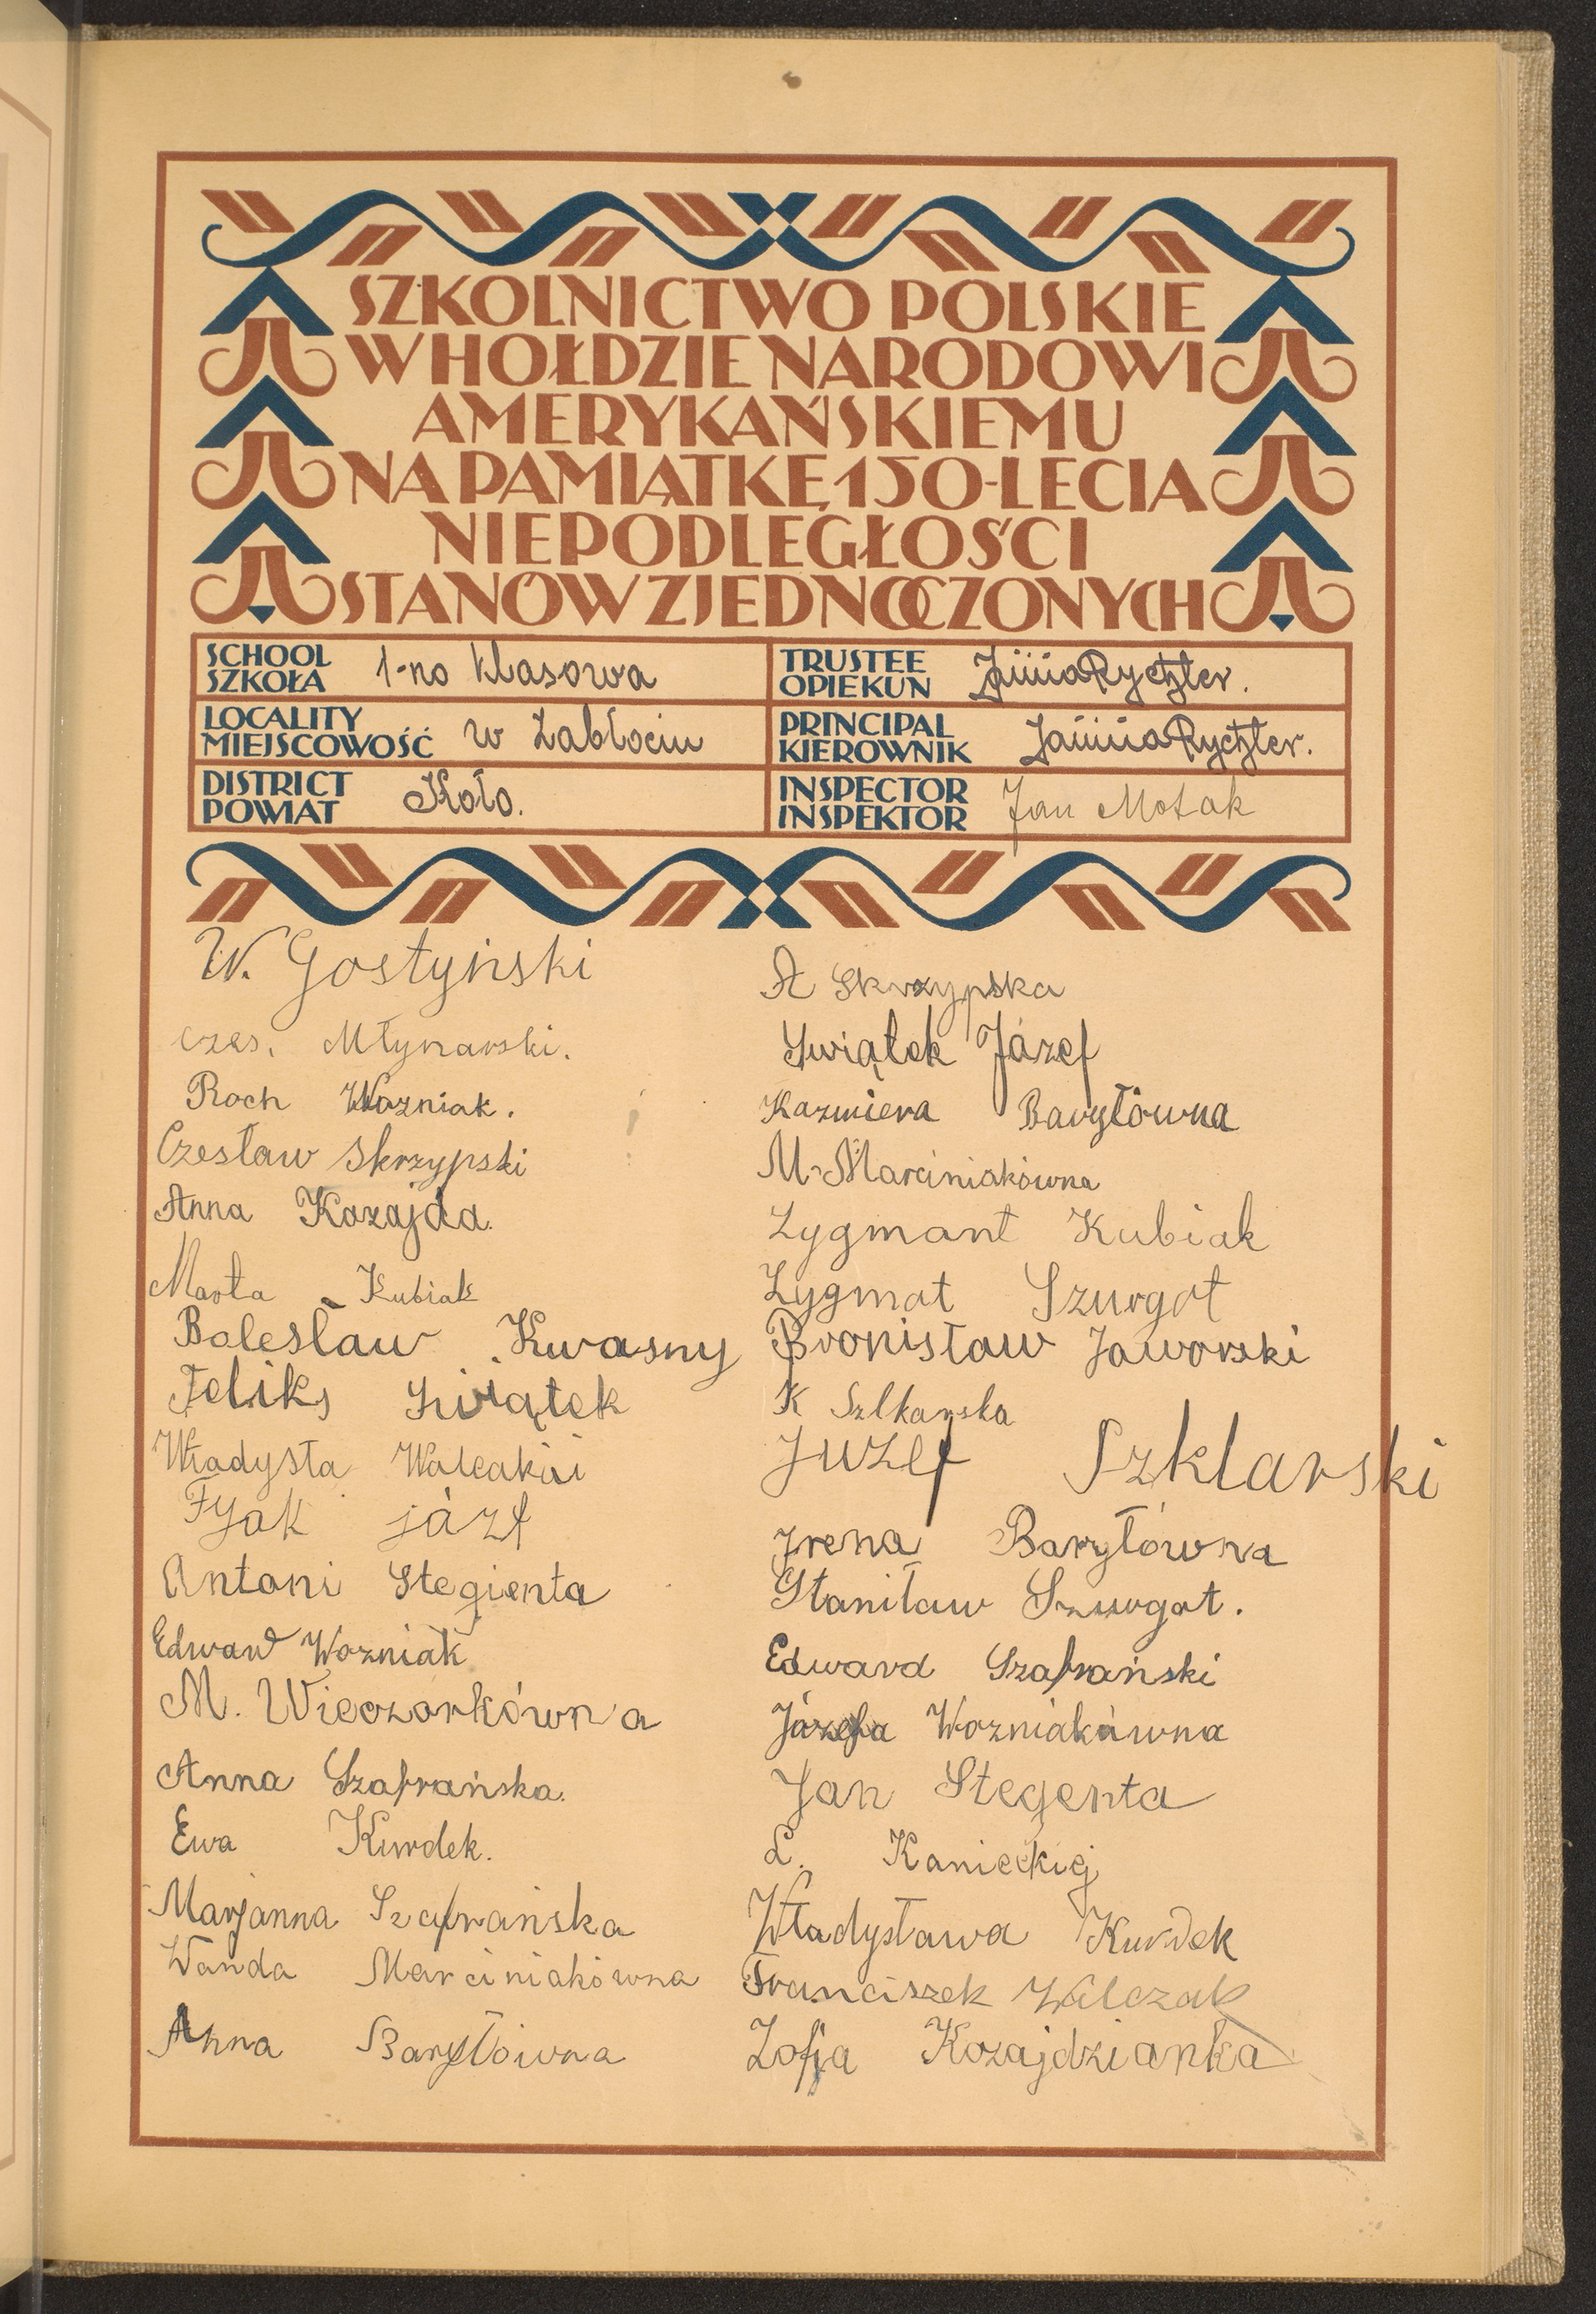 SZKOLNICTWO POLSKIE
W HOŁDZIE NARODOWI
AMERYKAŃSKIEMU
NA PAMIĄTKĘ 150-LECIA
NIEPODLEGŁOŚCI
STANÓW ZJEDNOCZONYCH
SCHOOL
SZKOŁA 1-no klasowa
LOCALITY
MIEJSCOWOŚĆ w Zabłociu
DISTRICT
POWIAT Koło.
TRUSTEE
OPIEKUN Janina Rychter.
PRINCIPAL
KIEROWNIK Janina Rychter.
INSPECTOR
INSPEKTOR Jan Motak
W. Gostyński
Czes. Młynarski.
Roch Wozniak.
Czesław Skrzypski
Anna Kozajda.
Marta Kubiak
Bolesław Kwasny
Feliks Swiątek
Władysła
Fyjak józf
Antoni Stegienta
Edward Wozniak
M. Wieczorkówna
Anna Szafrańska.
Ewa Kurdek.
Marjanna Szafrańska
Wanda Marciniakówna
Anna Baryłówna
A Skrzypska
Swiątek Józef
Kazmiera Baryłówna
M. Marciniakówna
Zygmant Kubiak
Zygmat Szurgot
Bronisław Jaworski
K Szlkarska
Juzef Szklarski
Irena Baryłówna
Staniław Szurgot.
Edward Szafrański
Józefa Wozniakówna
Jan Stegenta
L. Kanieckiej
Władysława Kurdek
Franciszek Walczak
Zofja Kozajdzianka